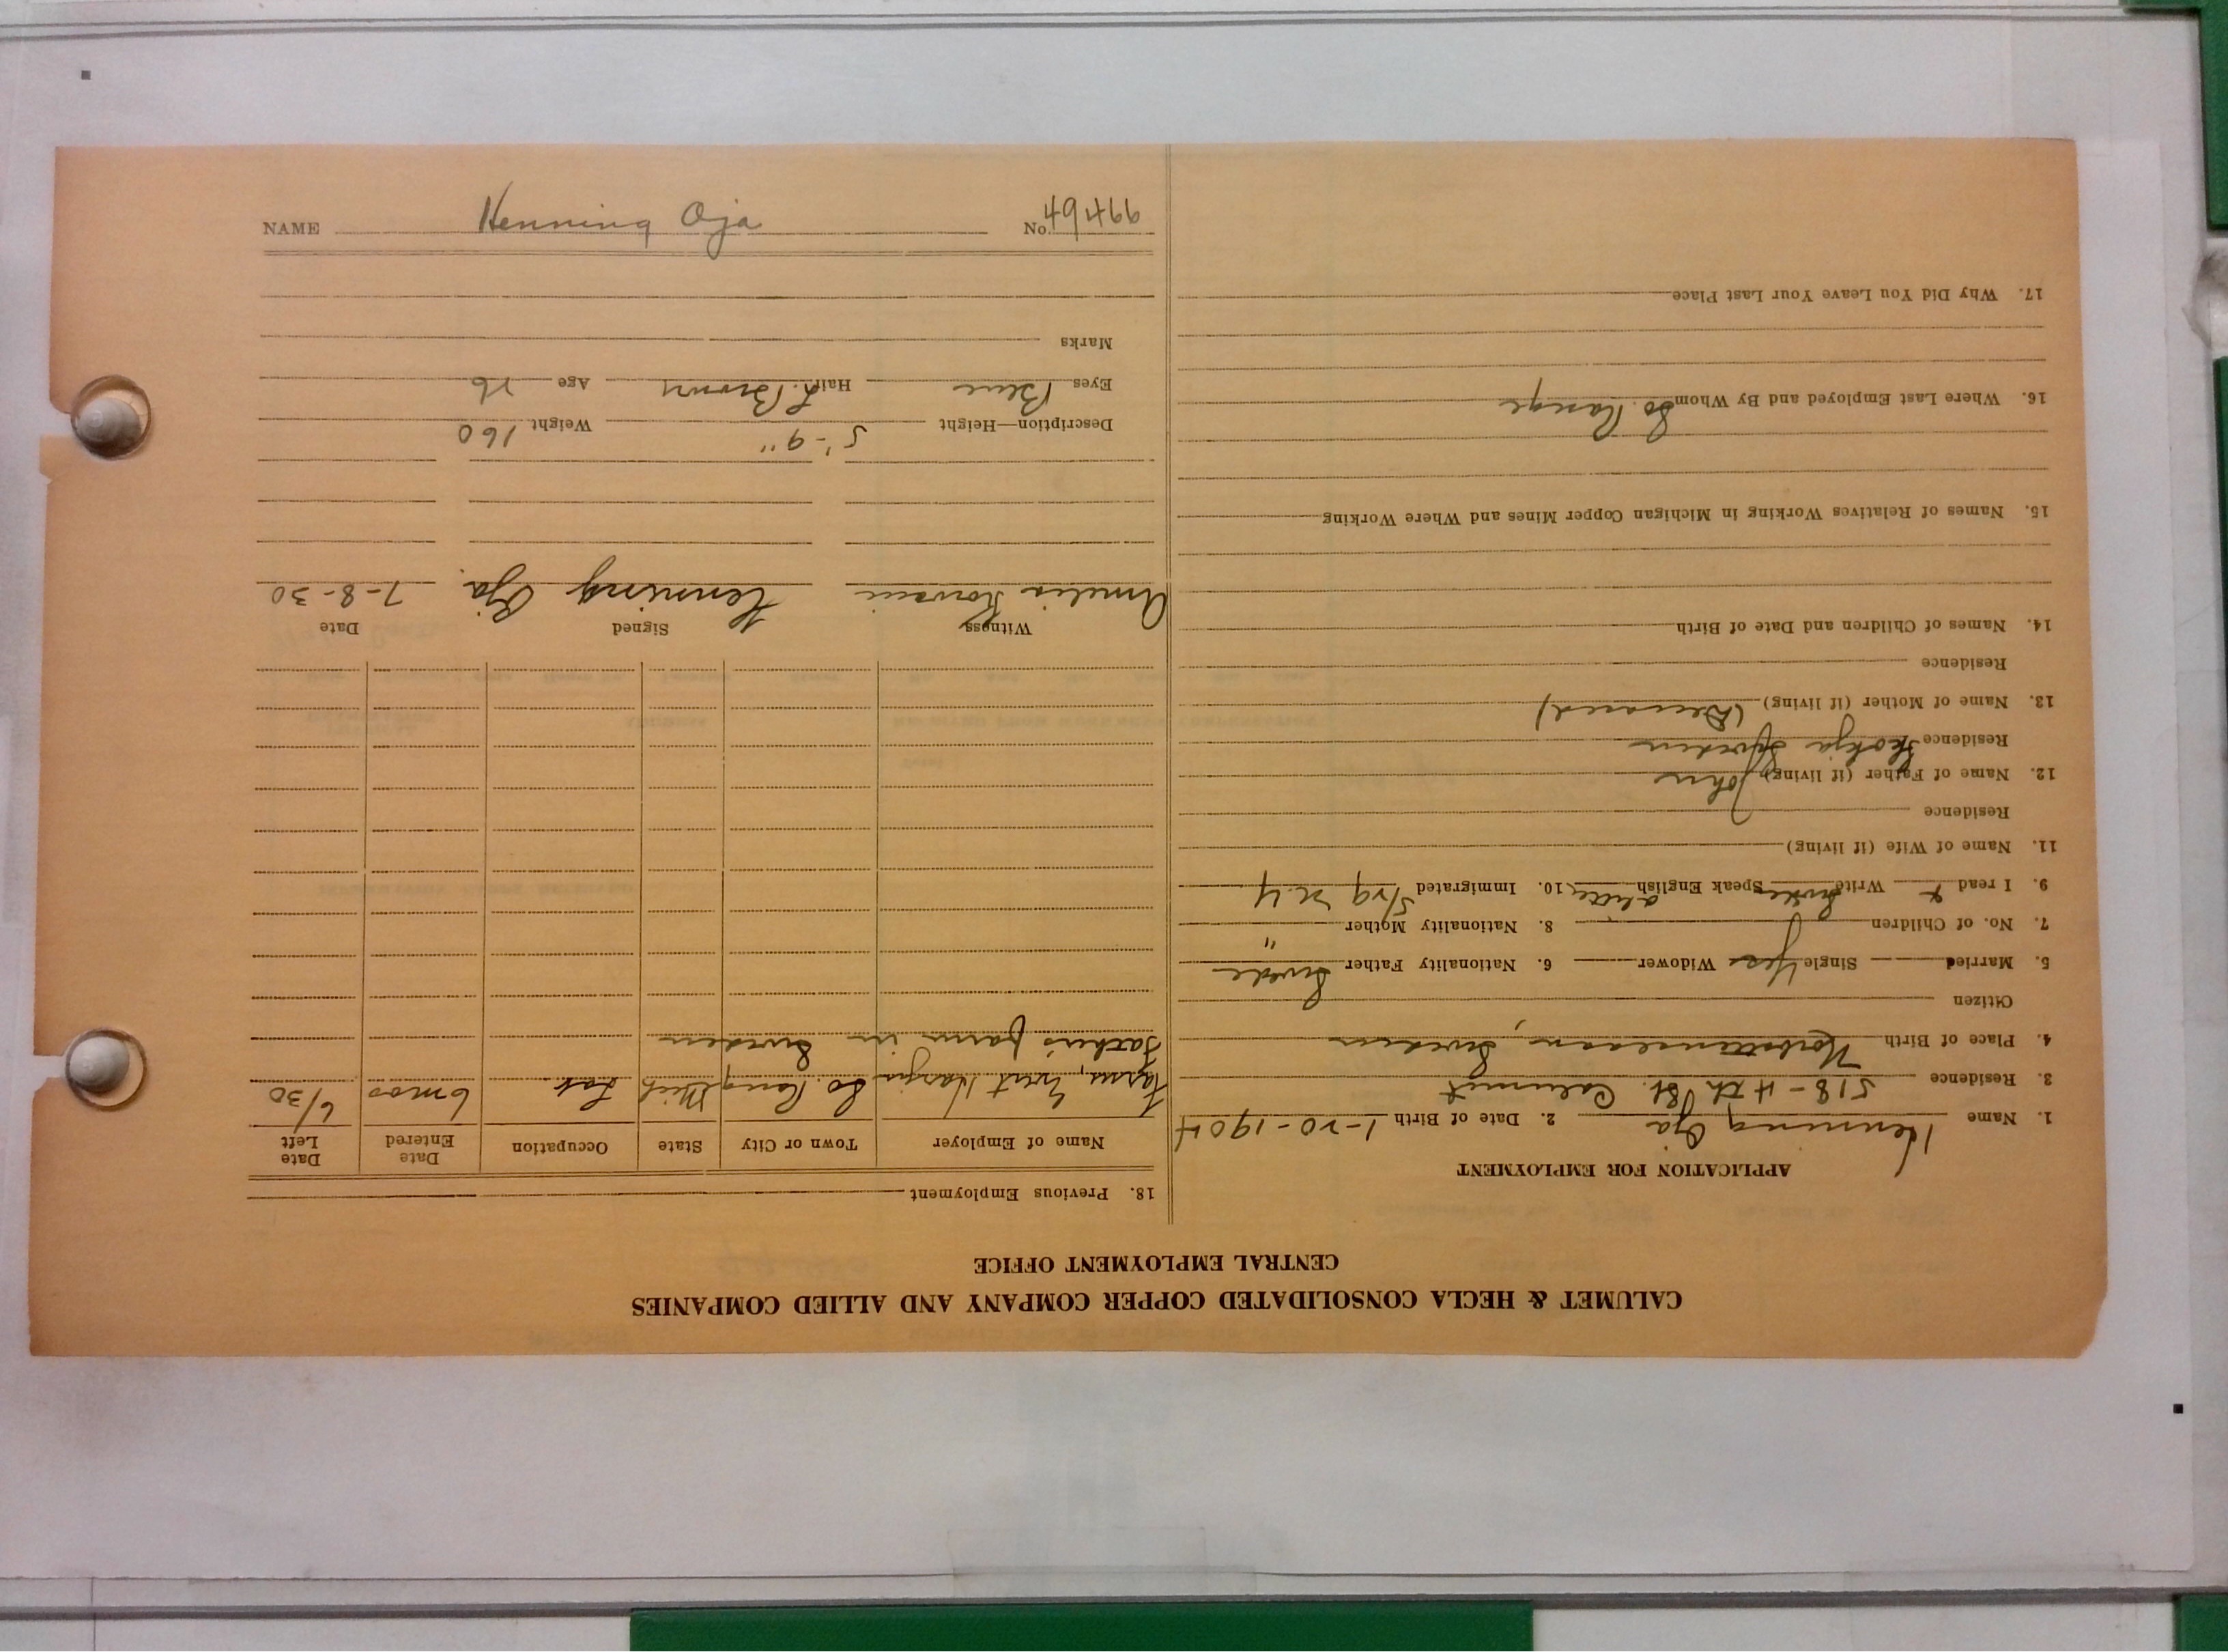 CALUMET & HECLA CONSOLIDATED COPPER COMPANY AND ALLIED COMPANIES
CENTRAL EMPLOYMENT OFFICE
APPLICATION FOR EMPLOYMENT
1. Name Henning Oja 2. Date of Birth 1-20-1904
3. Residence 518-4th St. Calumet
4. Place of Birth Sweden
Citizen
5. Married Single Yes Widower 6. Nationality Father Swede
7. No. of Children 8. Nationality Mother "
9. I read Write Speak English 10. Immigrated 5/29 N.Y
11. Name of Wife (if living)
Residence
12. Name of Father (if living) John
Residence Sweden
13. Name of Mother (if living) (Deceased)
Residence
14. Names of Children and Date of Birth
15. Names of Relatives Working in Michigan Copper Mines and Where Working
16. Where Last Employed and By Whom So. Range
17. Why Did You Leave Your Last Place
18. Previous Employment
Name of Employer Town or City State Occupation Date Entered Date Left
Farm, So. Range Mich Lab 6 mos 6/30
Father's farm in Sweden
Witness Signed Date
Amelia Henning Oja 7-8-30
Description—Height 5'-9" Weight 160
Eyes Blue Hair L. Brown Age 26
Marks
NAME Henning Oja No. 49466